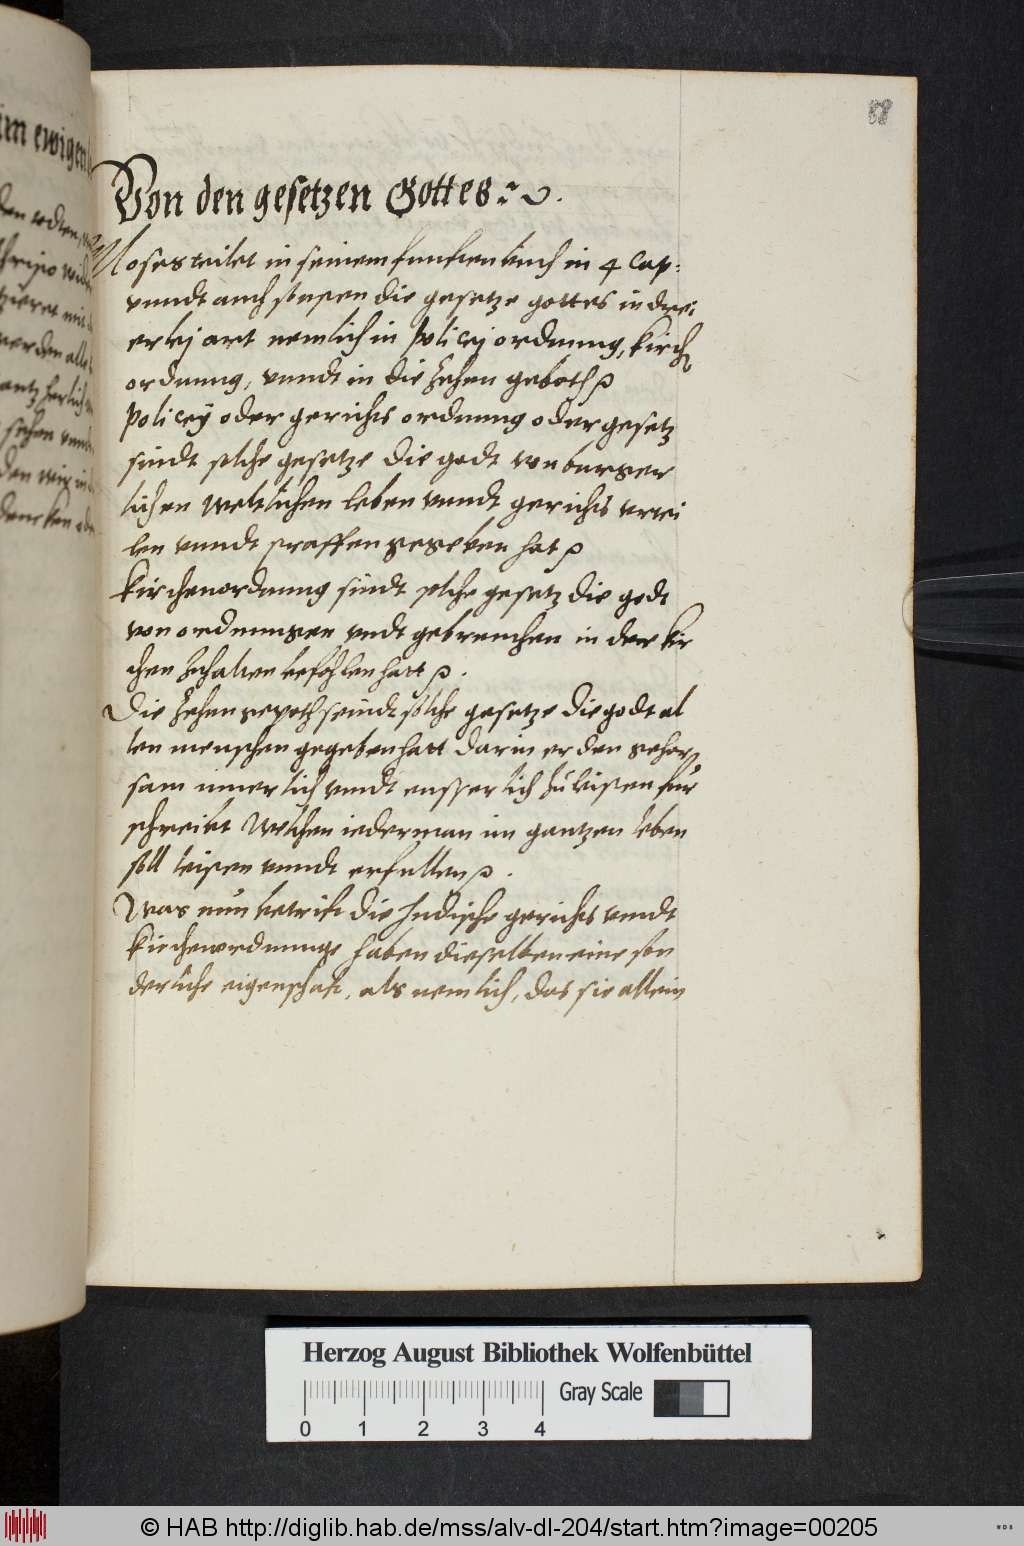 88
Von den gesetzen Gottes
Moses teilet in seinem funften buch in 4 Cap:
vnndt auch sonsten die gesetze gottes in drei
erlej art nemlich in policej ordnung, kirch
ordnung, vnndt in die zehen geboth
policeÿ oder gerichts ordnung oder gesetz
sindt solche gesetze die godt vom burger
lichen weltlichen leben vnndt gerichts vrtei
len vnndt straffen gegeben hat
kirchenordnung sindt solche gesetz die godt
von ordnungen vndt gebreuchen in der kir
chen zuhalten befohlen hatt
Die zehen gepoth seindt solche gesetze die godt al
len menschen gegeben hatt darin er den gehor
sam innerlich vndt eusserlich zu leisten fur
schreibt welchen iederman im gantzen leben
soll leisten vnndt erfullen
Was nun betrift die Judische gerichts vnndt
kirchenordnunge haben dieselben eine son
derliche eigenschaft, als nemlich, das sie allein
im ewigen
den
werden alle
gantz herlich
sehen
den wir in
dencken
Herzog August Bibliothek Wolfenbüttel
Gray Scale
0 1 2 3 4
© HAB http://diglib.hab.de/mss/alv-dl-204/start.htm?image=00205